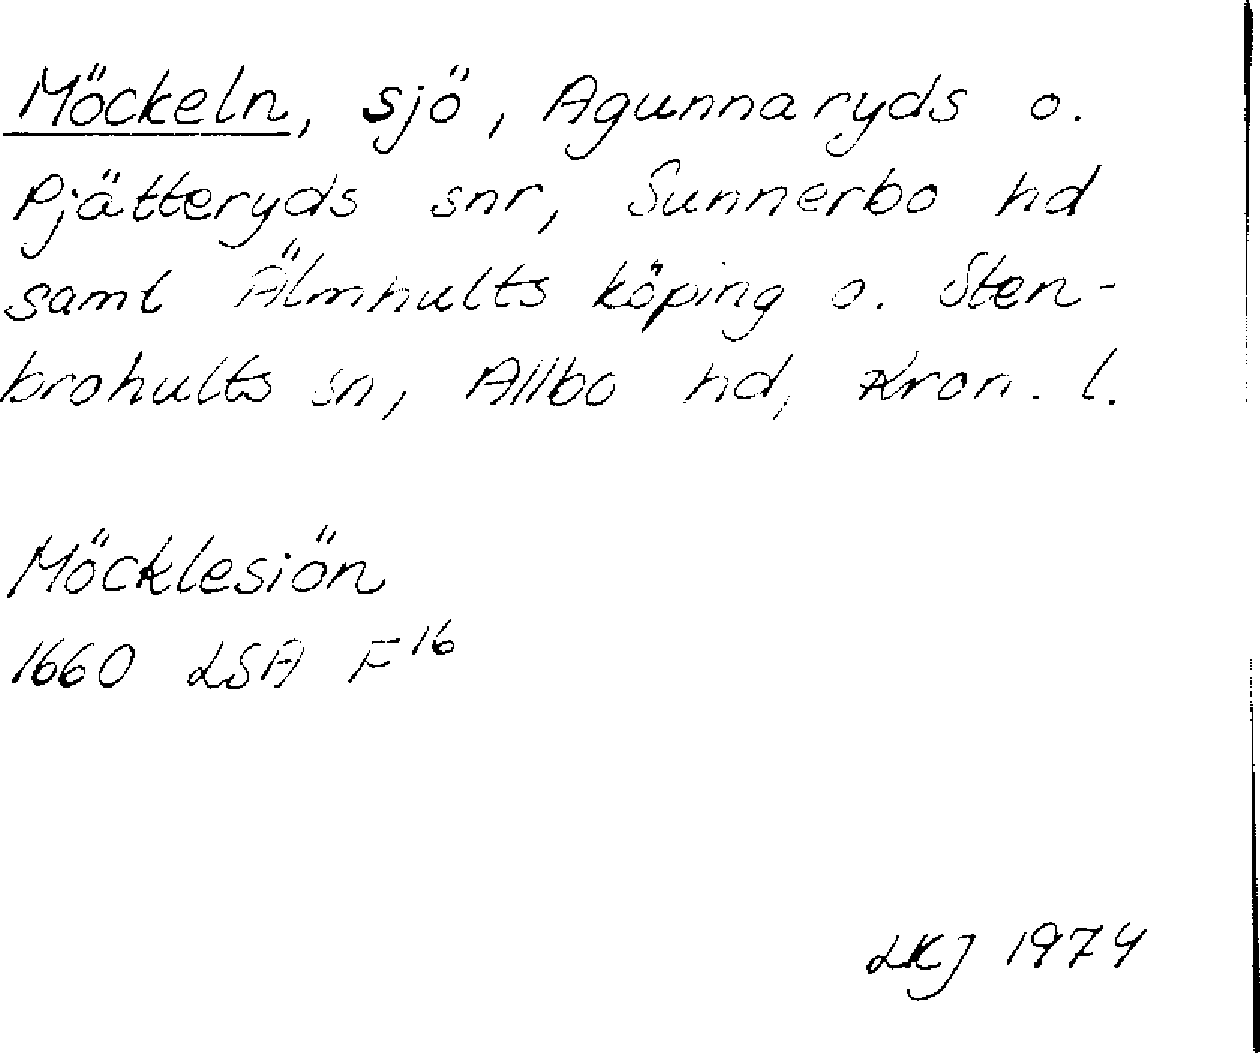 Möckeln, sjö, Agunnaryds o.
Pjätteryds snr, Sunnerbo hd
samt Älmhults köping o. Sten-
brohults sn, Allbo hd, Kron. l.
Möcklesiön
1660 LSA F16
LKJ 1974